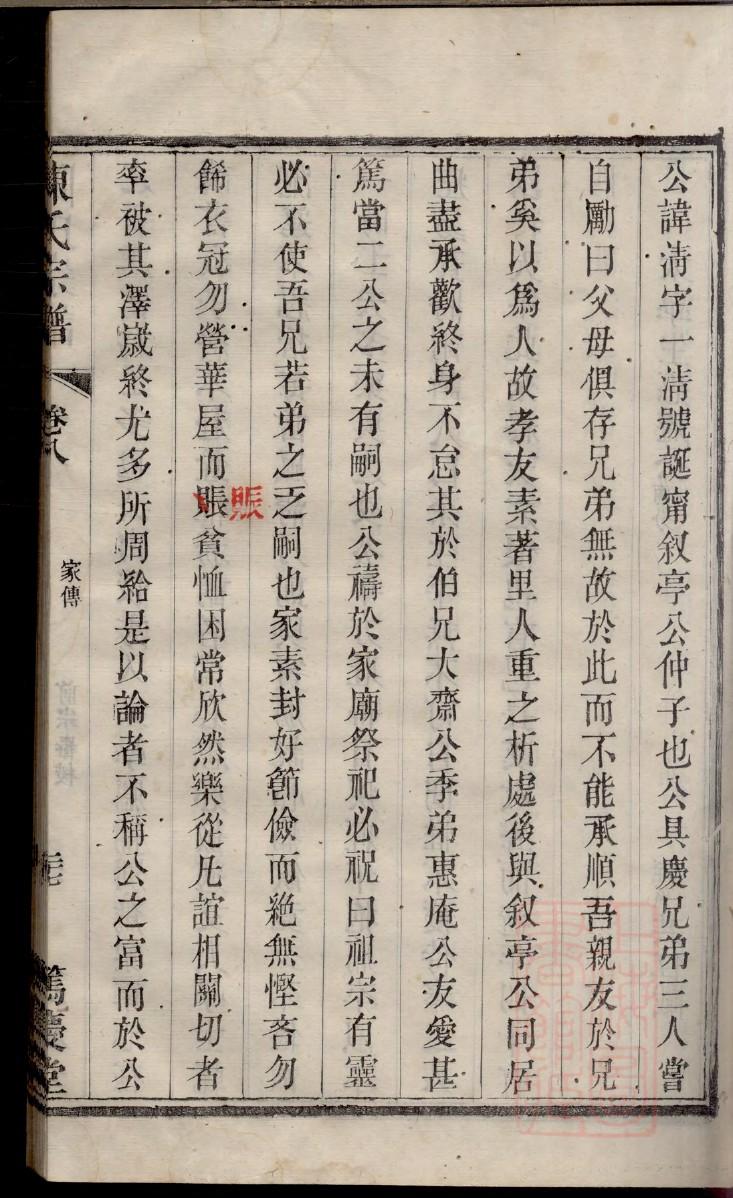 公諱淸字一淸號誕甯叙亭公仲子也公具慶兄弟三人嘗
自勵曰父母俱存兄弟無故於此而不能承順吾親友於兄
弟奚以爲人故孝友素著里人重之析處後與叙亭公同居
曲盡承歡終身不怠其於伯兄大齋公季弟惠庵公友愛甚
篤當二公之未有嗣也公禱於家廟祭祀必祝曰祖宗有靈
必不使吾兄若弟之乏嗣也家素封好節儉而絶無慳吝勿
餙衣冠勿營華屋而賬貧恤困常欣然樂從凡誼相關切者
賑
率被其澤歲終尤多所周給是以論者不稱公之富而於公
陳氏宗譜
卷八
家傳
篤慶堂